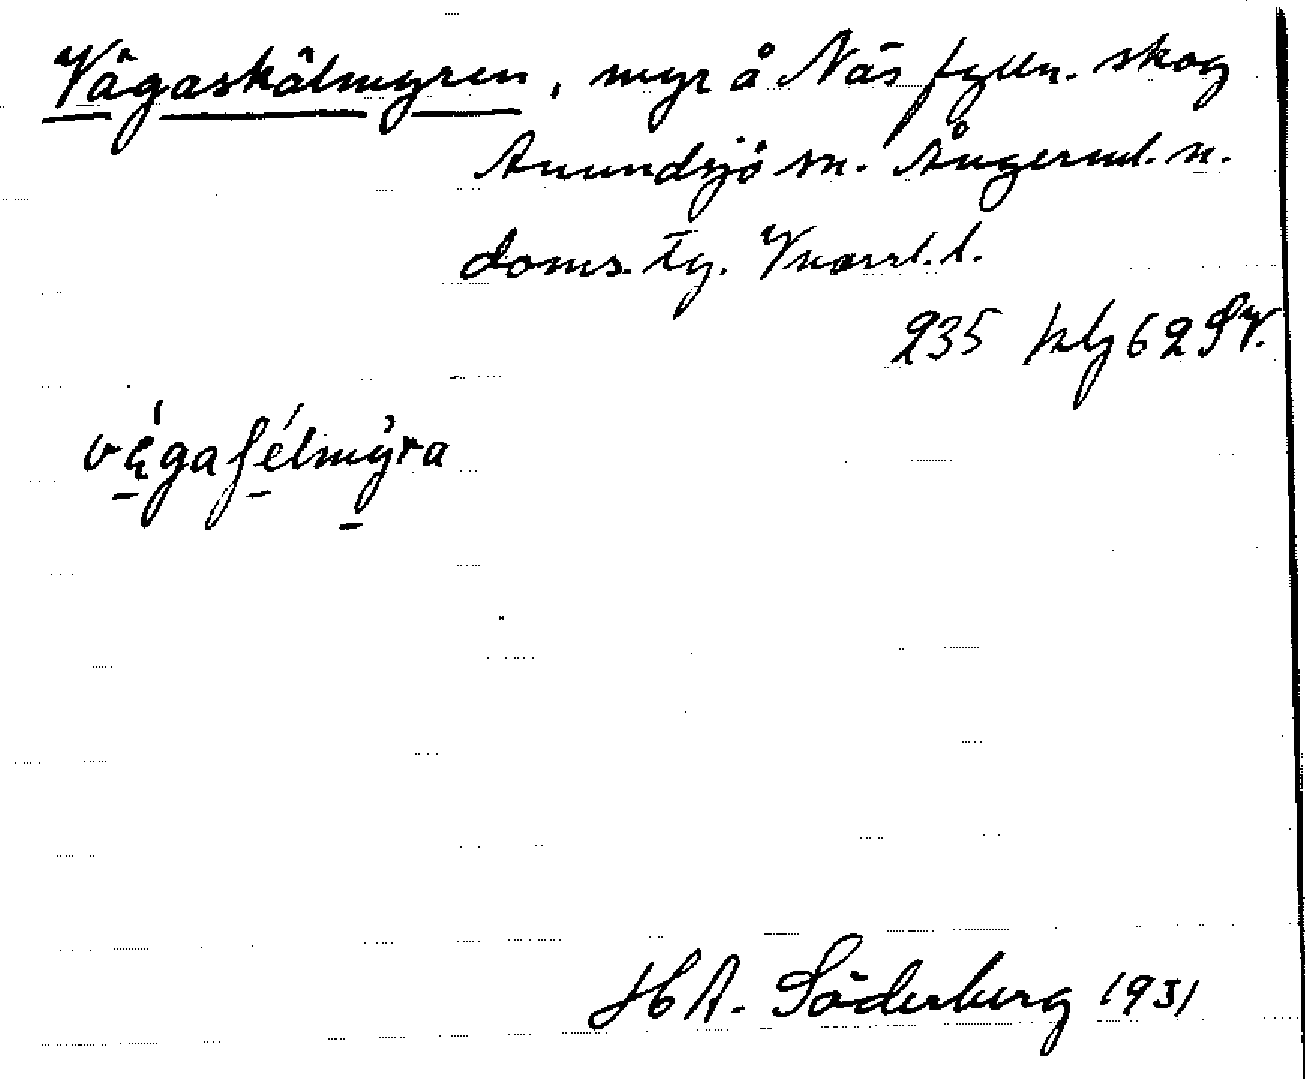 Vägaskälmyren, myr å Näs fzlln. skog
Anundsjö sn. Ångerml. n.
doms. tg. Vnorrl. l.
235 klg 62 SV.
vęgaʃélmyra
H A. Söderberg 1931